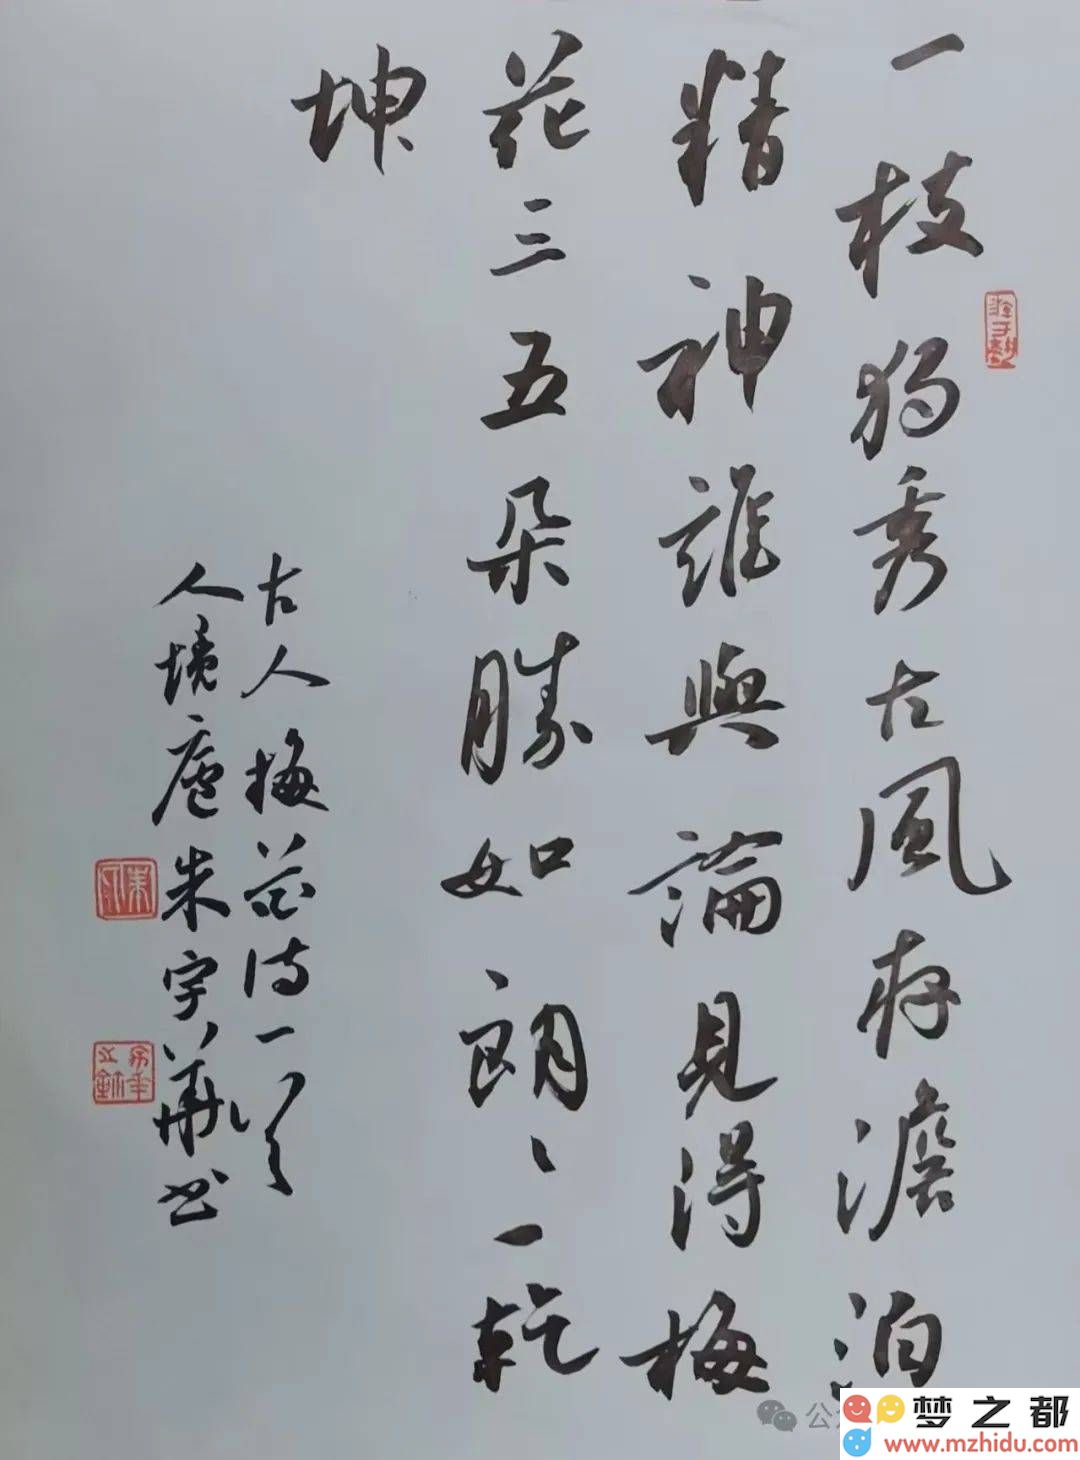 一枝獨秀古風存澹泊
精神誰與論見得梅
花三五朵勝如朗〻一乾
坤
古人梅花诗一首
人境廬朱宇華书
公
梦之都
www.mzhidu.com